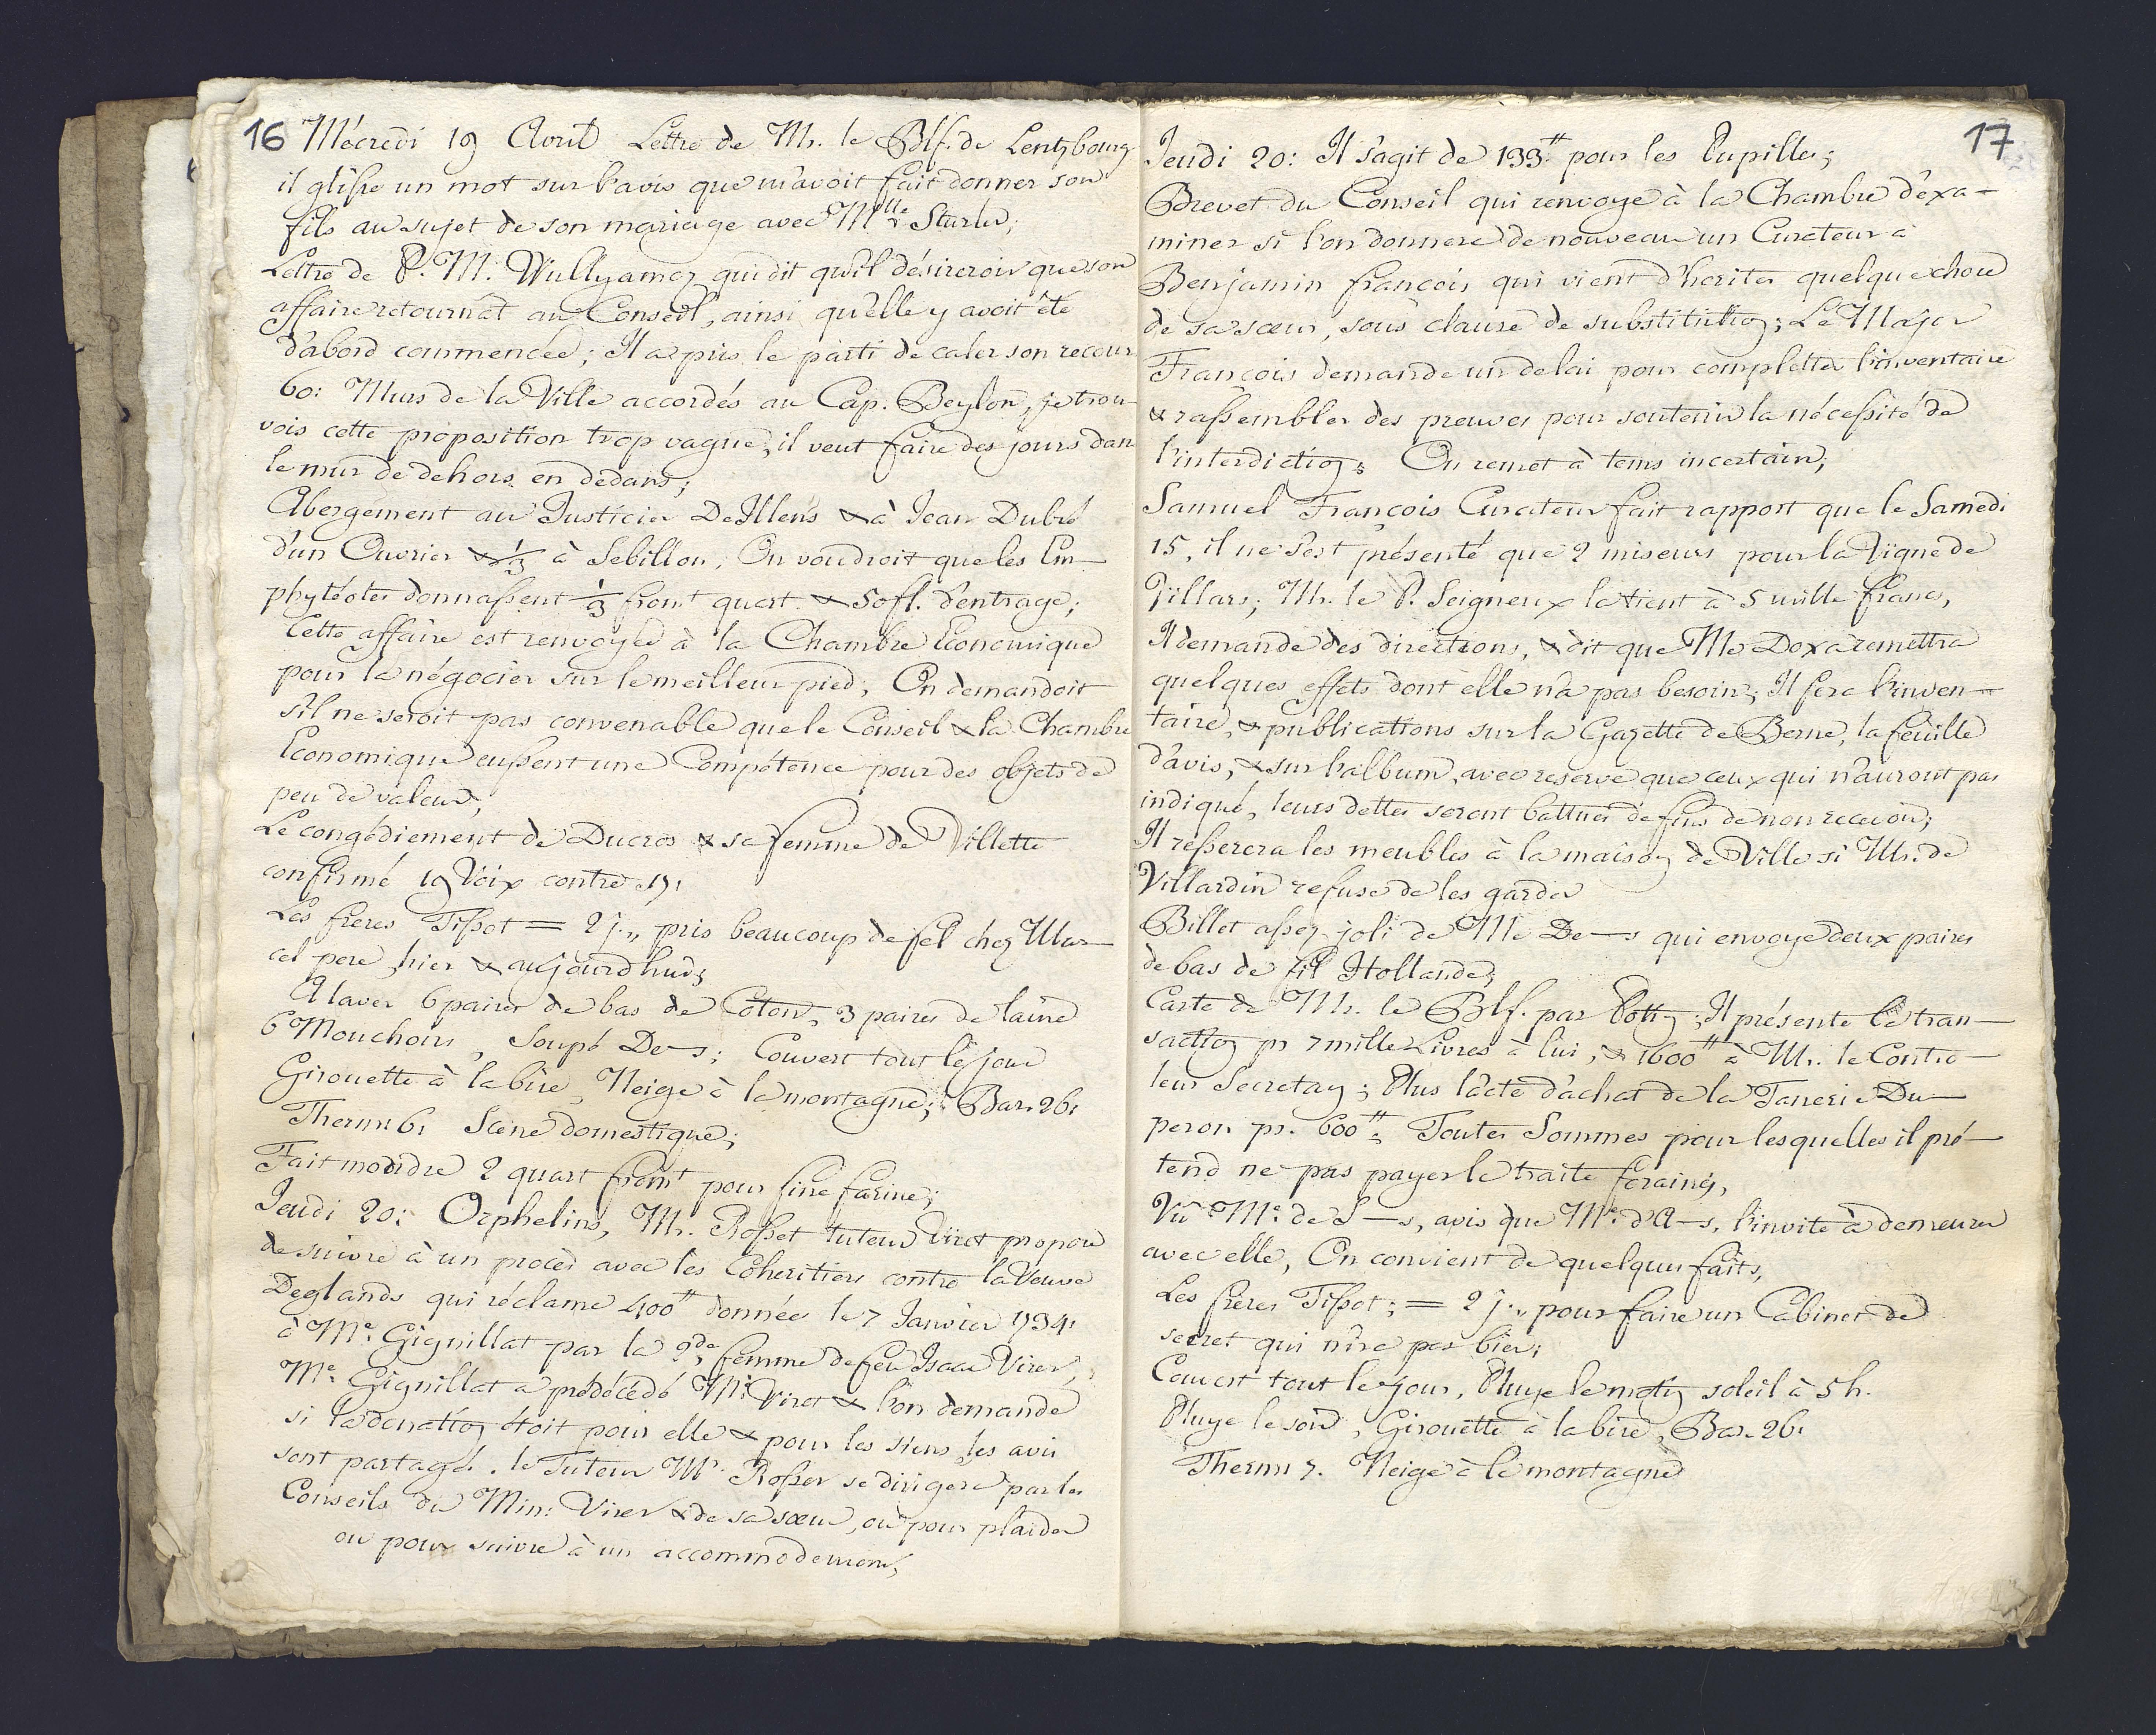 16 Mécredi 19 Avril Lettre de Mr. le Blf. de Lentzbourg
il glisse un mot sur l'avis que m'avoit fait donner son
fils au sujet de son mariage avec Mlle Sturler;
Lettre de P. M. Wullyamoz qui dit qu'il désireroit que son
affaire retournât au Conseil, ainsi qu'elle y avoit été
d'abord commencée; Il a pris le parti de caler son recour
60: Murs de la Ville accordés au Cap. Beylon, je trou-
vois cette proposition trop vague, il veut faire des jours dan
le mur de dehors en dedans;
Abergement au Justicier De Illens & à Jean Dubré
d'un Ouvrier & 1/3 à Sebillon, On voudroit que les Em-
phytéotes donnassent 1/3 fromt quart. & 50 fl. d'entrage;
Cette affaire est renvoyée à la Chambre Economique
pour la négocier sur le meilleur pied; On demandoit
s'il ne seroit pas convenable que le Conseil & la Chambre
Economique eussent une Compétence pour des objets de
peu de valeur;
Le congédiement de Ducros & sa femme de Villette
confirmé 19 Voix contre 17;
Les freres Tissot = 2 j.,, pris beaucoup de sel chez Mar-
cel pere, hier & aujourdhui;
A laver 6 paires de bas de Coton, 3 paires de laine
6 Mouchoirs, Soupé De-s; Couvert tout le jour
Girouette à la bise, Neige à la montagne; Bar. 26:
Therm 6: Scène domestique;
Fait moudre 2 quart fromt pour fine farine;
Jeudi 20: Orphelins, Mr. Rosset tuteur Viret propose
de suivre à un procès avec les Coheritiers contre la Veuve
Deglands qui réclame 400 ₶ donnée le 7 Janvier 1734
à Me. Gignillat par la 2de, femme de feu Isaac Viret,
Me. Gignillat a prédécédé Me. Viret & l'on demande
si la donation étoit pour elle & pour les siens, les avis
sont partagés. le Tuteur Mr. Rosset se dirigera par les
Conseils du Min: Viret & de sa sœur, ou pour plaider
ou pour suivre à un accommodement;
17
Jeudi 20: Il s'agit de 133 ₶ pour les Pupilles;
Brevet du Conseil qui renvoye à la Chambre d'exa-
miner si l'on donnera de nouveau un Curateur à
Benjamin françois qui vient d'heriter quelque chose
de sa sœur, sous clause de substitution; Le Major
François demande un delai pour completter l'inventaire
& rassembler des preuves pour soutenir la nécessité de
l'interdiction; On remet à tems incertain;
Samuel François Curateur fait rapport que le Samedi
15, il ne s'est présenté que 2 miseurs pour la Vigne de
Villars; Mr. le P. Seigneux la tient à 5 mille francs,
Il demande des directions, & dit que Me Doxa remettra
quelques effets dont elle n'a pas besoin; Il fera l'inven-
taire, & publications sur la Gazette de Berne, la feuille
d'avis, & sur l'album, avec reserve que ceux qui n'auront pas
indiqué, leurs dettes seront battues de fins de non recevoir;
Il resserera les meubles à la maison de Ville si Mr. de
Villardin refuse de les garder
Billet assez joli de Me De-s qui envoye deux paires
de bas de fil Hollande;
Carte de Mr. le Blf. par Pott; Il présente la tran-
saction pr 7 mille Livres à lui, & 1600 ₶ à Mr. le Contro-
leur Secretan; Plus l'acte d'achat de la Tanerie Du-
peron pr. 600 ₶; Toutes Sommes pour lesquelles il pré-
tend ne pas payer le traite foraine,
Vu Me. de S-s, avis que Me. d'A-s, l'invite à demeurer
avec elle, On convient de quelques faits,
Les freres Tissot; = 2 j.,, pour faire un Cabinet de
secret qui n'ira pas bien;
Couvert tout le jour, Pluye le matin soleil à 5 h.
Pluye le soir, Girouette à la bise, Bar. 26:
Therm 7. Neige à la montagne